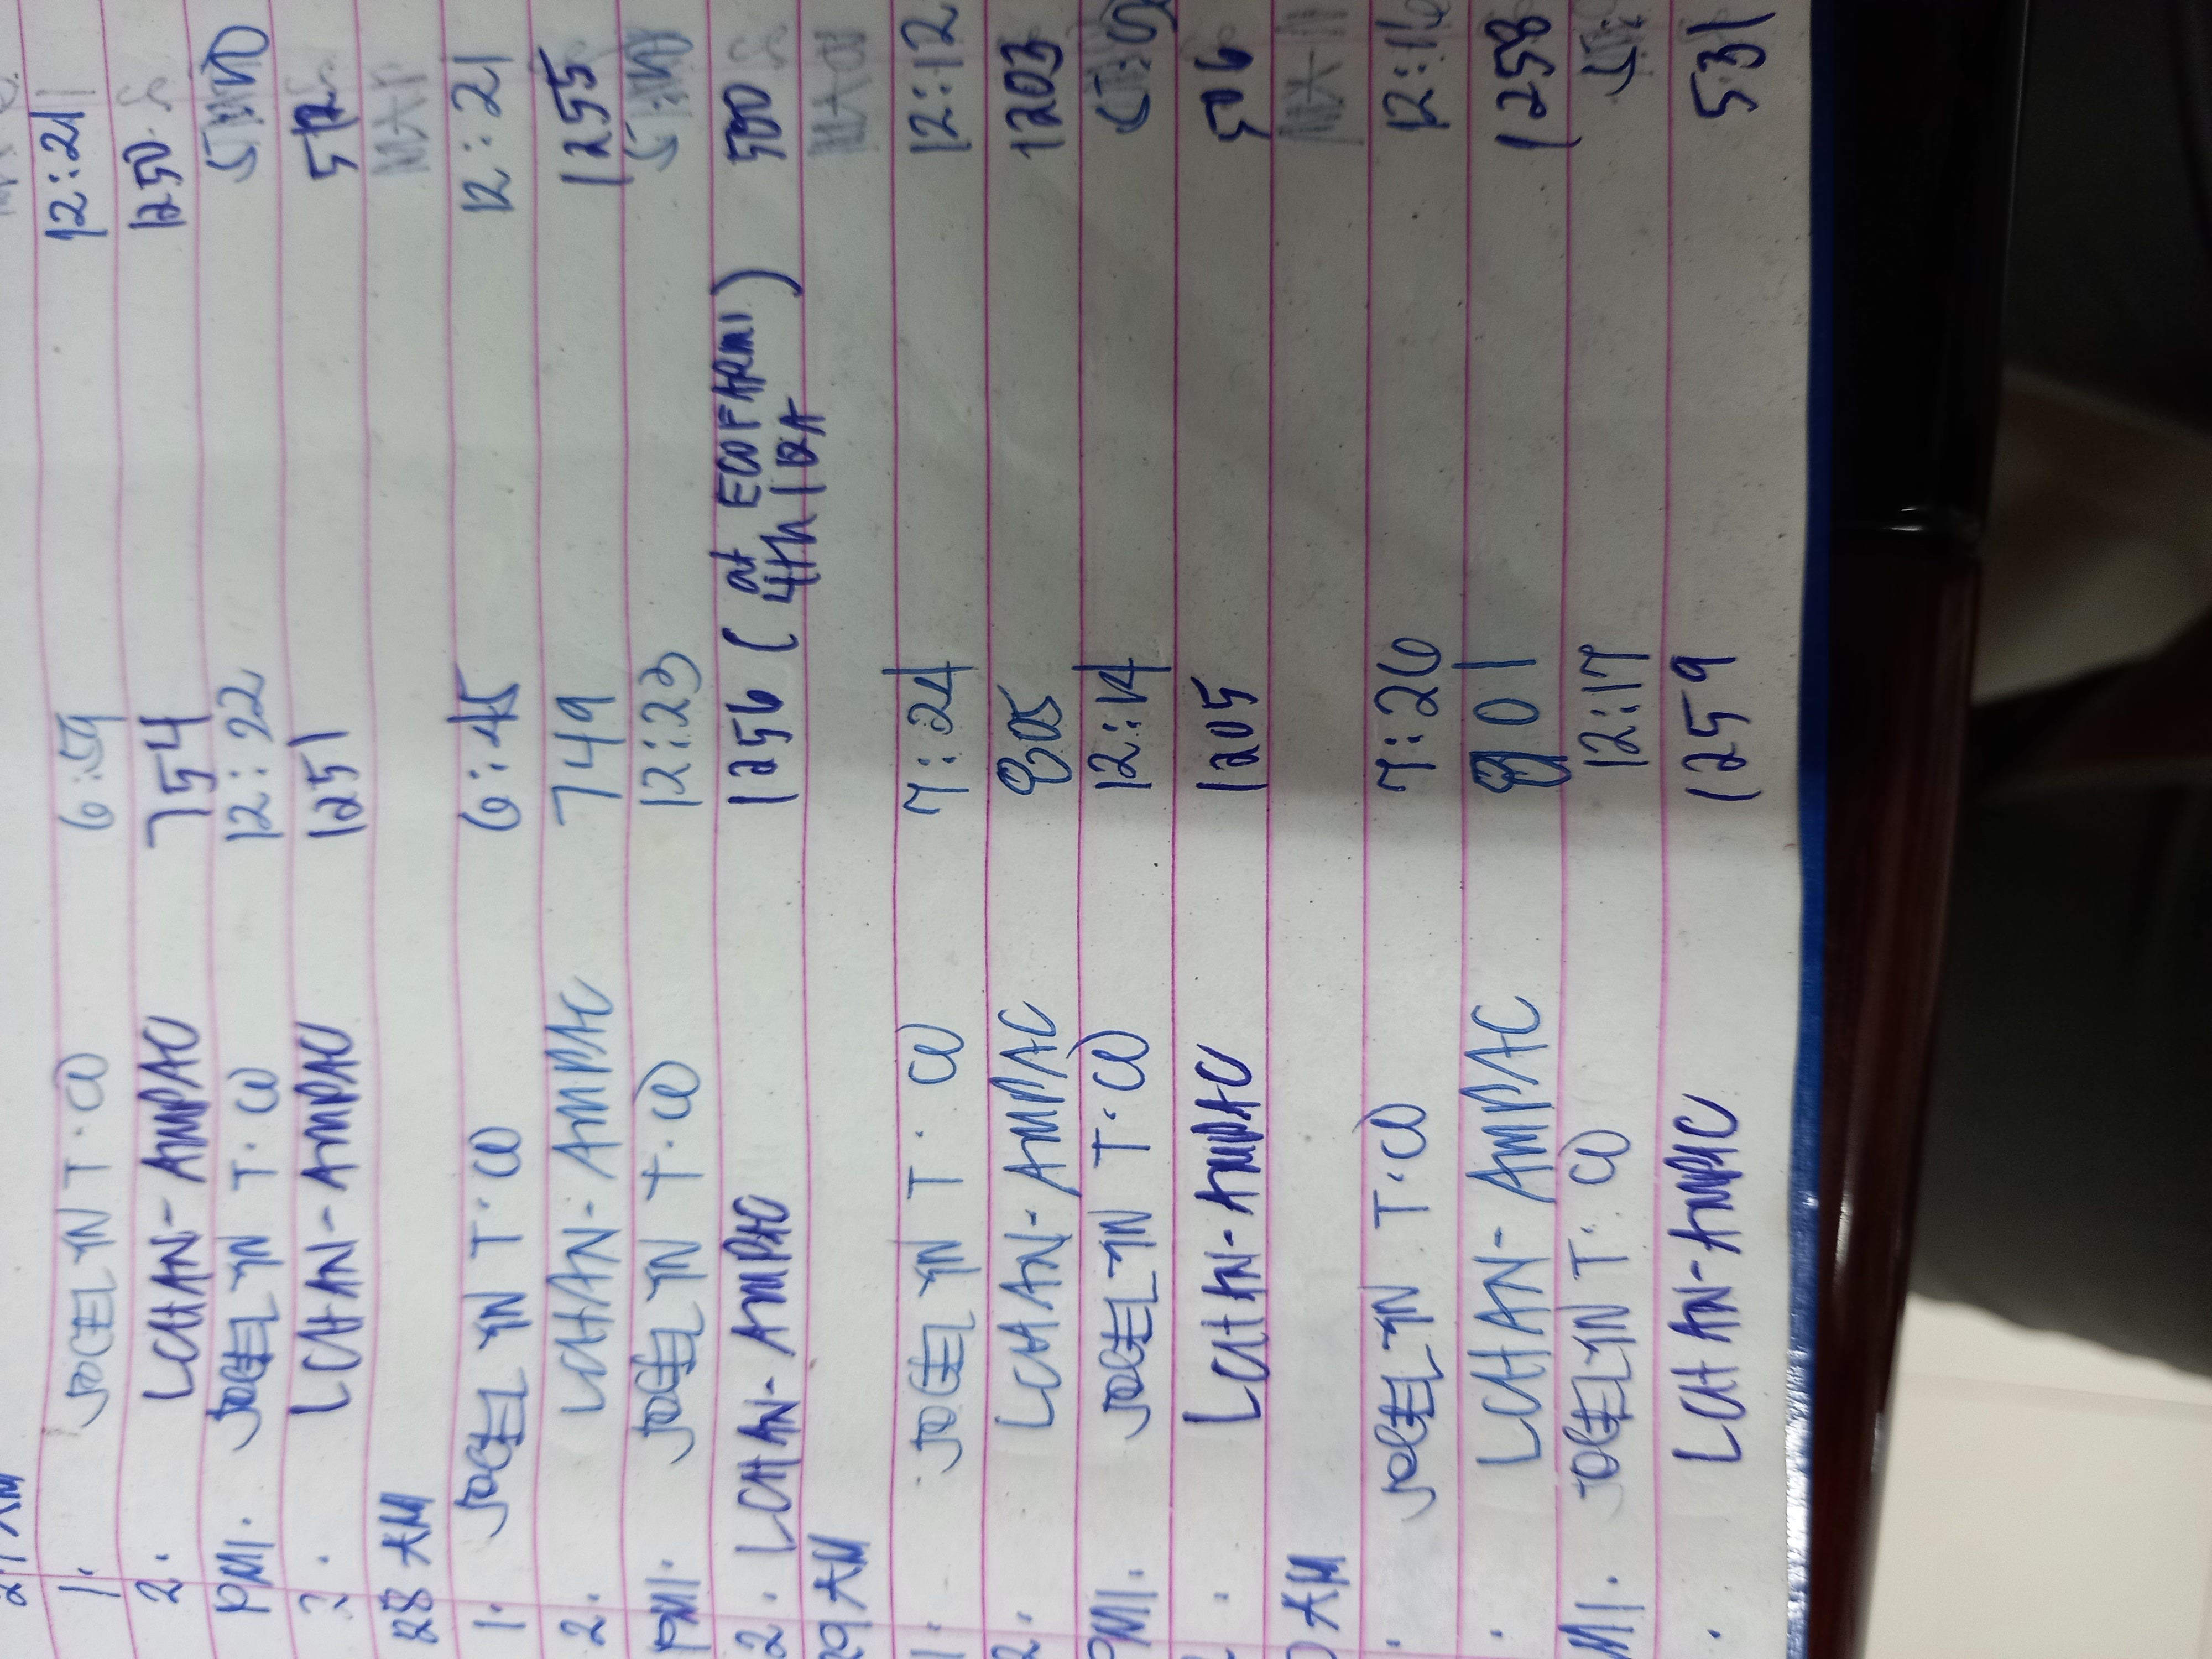 27 AM
1. JOCELYN T. CO 6:59 12:21
2. LCHAN-AMPAC 754 1250
PM 1. JOCELYN T. CO 12:22
2. LCHAN-AMPAC 1251 512
28 AM
1. JOCELYN T. CO 6:45 12:21
2. LCHAN-AMPAC 749 1255
PM 1. JOCELYN T. CO 12:23
2. LCHAN-AMPAC 1256 (at ECOFARMI) 500
4th IRA
29 AM
1. JOCELYN T. CO 7:24 12:12
2. LCHAN-AMPAC 805 1203
PM 1. JOCELYN T. CO 12:14
. LCHAN-AMPAC 1205 506
AM
. JOCELYN T. CO 7:26 12:16
. LCHAN-AMPAC 801 1258
M 1. JOCELYN T. CO 12:17
. LCHAN-AMPAC 1259 531